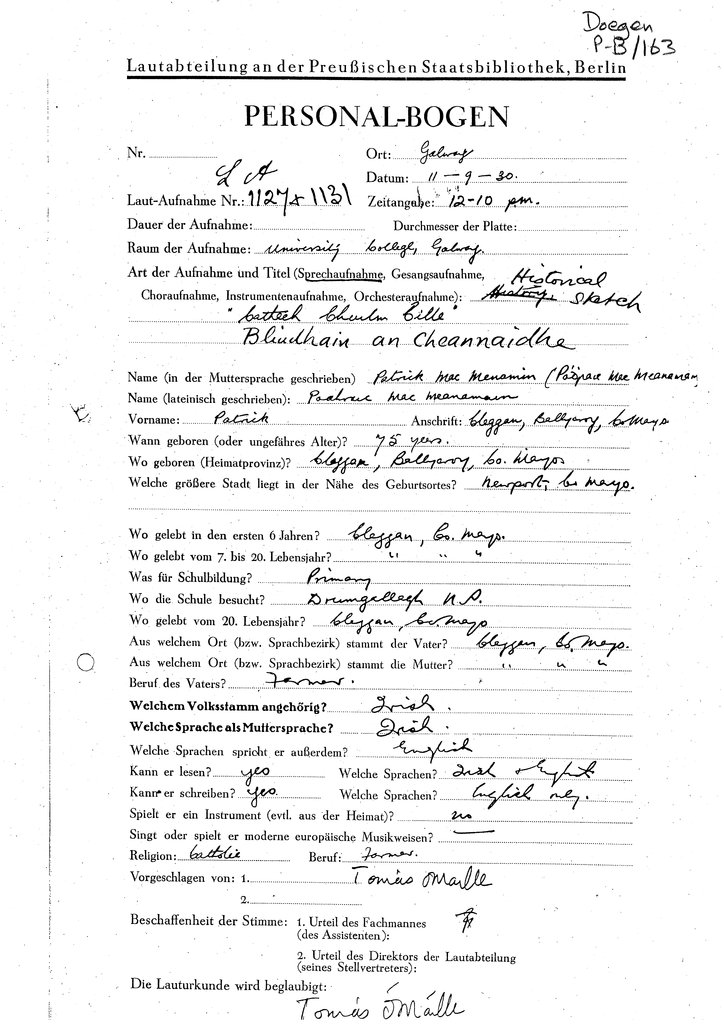 Doegen
P-B/163
Lautabteilung an der Preußischen Staatsbibliothek, Berlin
PERSONAL-BOGEN
Nr. Ort: Galway
LA Datum: 11-9-30.
Laut-Aufnahme Nr.: 1127 & 1131 Zeitangabe: 12-10 pm.
Dauer der Aufnahme: Durchmesser der Platte:
Raum der Aufnahme: University College, Galway.
Art der Aufnahme und Titel (Sprechaufnahme, Gesangsaufnahme, Historical
Choraufnahme, Instrumentenaufnahme, Orchesteraufnahme): History Sketch
"Cattach Choilm Cille"
Bliadhain an Cheannaidhe
Name (in der Muttersprache geschrieben) Patrick Mac Menamin (Pádraic Mac Meanaman
Name (lateinisch geschrieben): Padraic Mac Meanamain
Vorname: Patrick Anschrift: Cleggan, Ballycroy, Co Mayo
Wann geboren (oder ungefähres Alter)? 75 years.
Wo geboren (Heimatprovinz)? Cleggan, Ballycroy, Co. Mayo
Welche größere Stadt liegt in der Nähe des Geburtsortes? Newport, Co Mayo.
Wo gelebt in den ersten 6 Jahren? Cleggan, Co. Mayo.
Wo gelebt vom 7. bis 20. Lebensjahr? " " "
Was für Schulbildung? Primary
Wo die Schule besucht? Drumgallagh N.S.
Wo gelebt vom 20. Lebensjahr? Cleggan, Co Mayo
Aus welchem Ort (bzw. Sprachbezirk) stammt der Vater? Cleggan, Co. Mayo.
Aus welchem Ort (bzw. Sprachbezirk) stammt die Mutter? " " "
Beruf des Vaters? Farmer.
Welchem Volksstamm angehörig? Irish.
Welche Sprache als Muttersprache? Irish.
Welche Sprachen spricht er außerdem? English
Kann er lesen? yes Welche Sprachen? Irish & English
Kann er schreiben? yes. Welche Sprachen? English only.
Spielt er ein Instrument (evtl. aus der Heimat)? no
Singt oder spielt er moderne europäische Musikweisen? —
Religion: Catholic Beruf: Farmer.
Vorgeschlagen von: 1. Tomás Ó Máille
2.
Beschaffenheit der Stimme: 1. Urteil des Fachmannes
(des Assistenten):
2. Urteil des Direktors der Lautabteilung
(seines Stellvertreters):
Die Lauturkunde wird beglaubigt:
Tomás Ó Máille